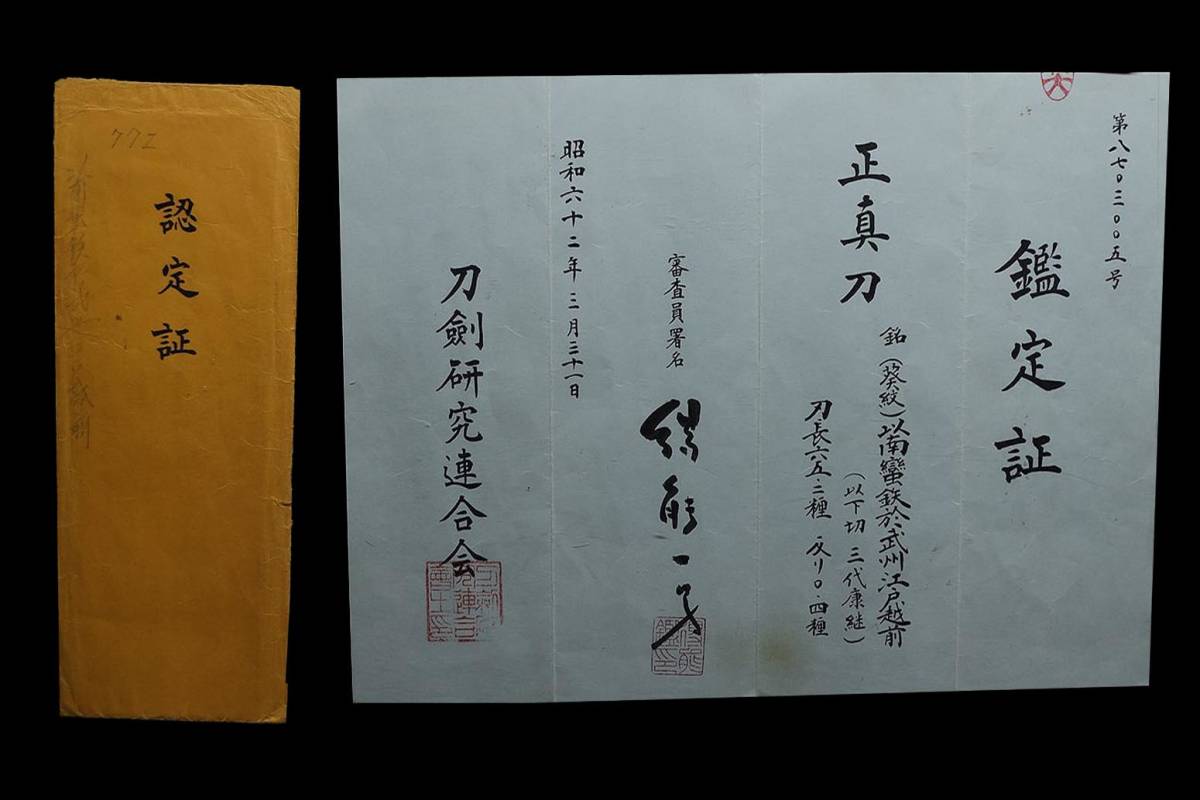 第八七〇三〇〇五号
鑑定証
正真刀
銘(葵紋)以南蛮鉄於武州江戸越前
(以下切 三代康継)
刃長六五・二糎 反り〇・四糎
審査員署名
昭和六十二年三月三十一日
刀劍研究連合会
認定証